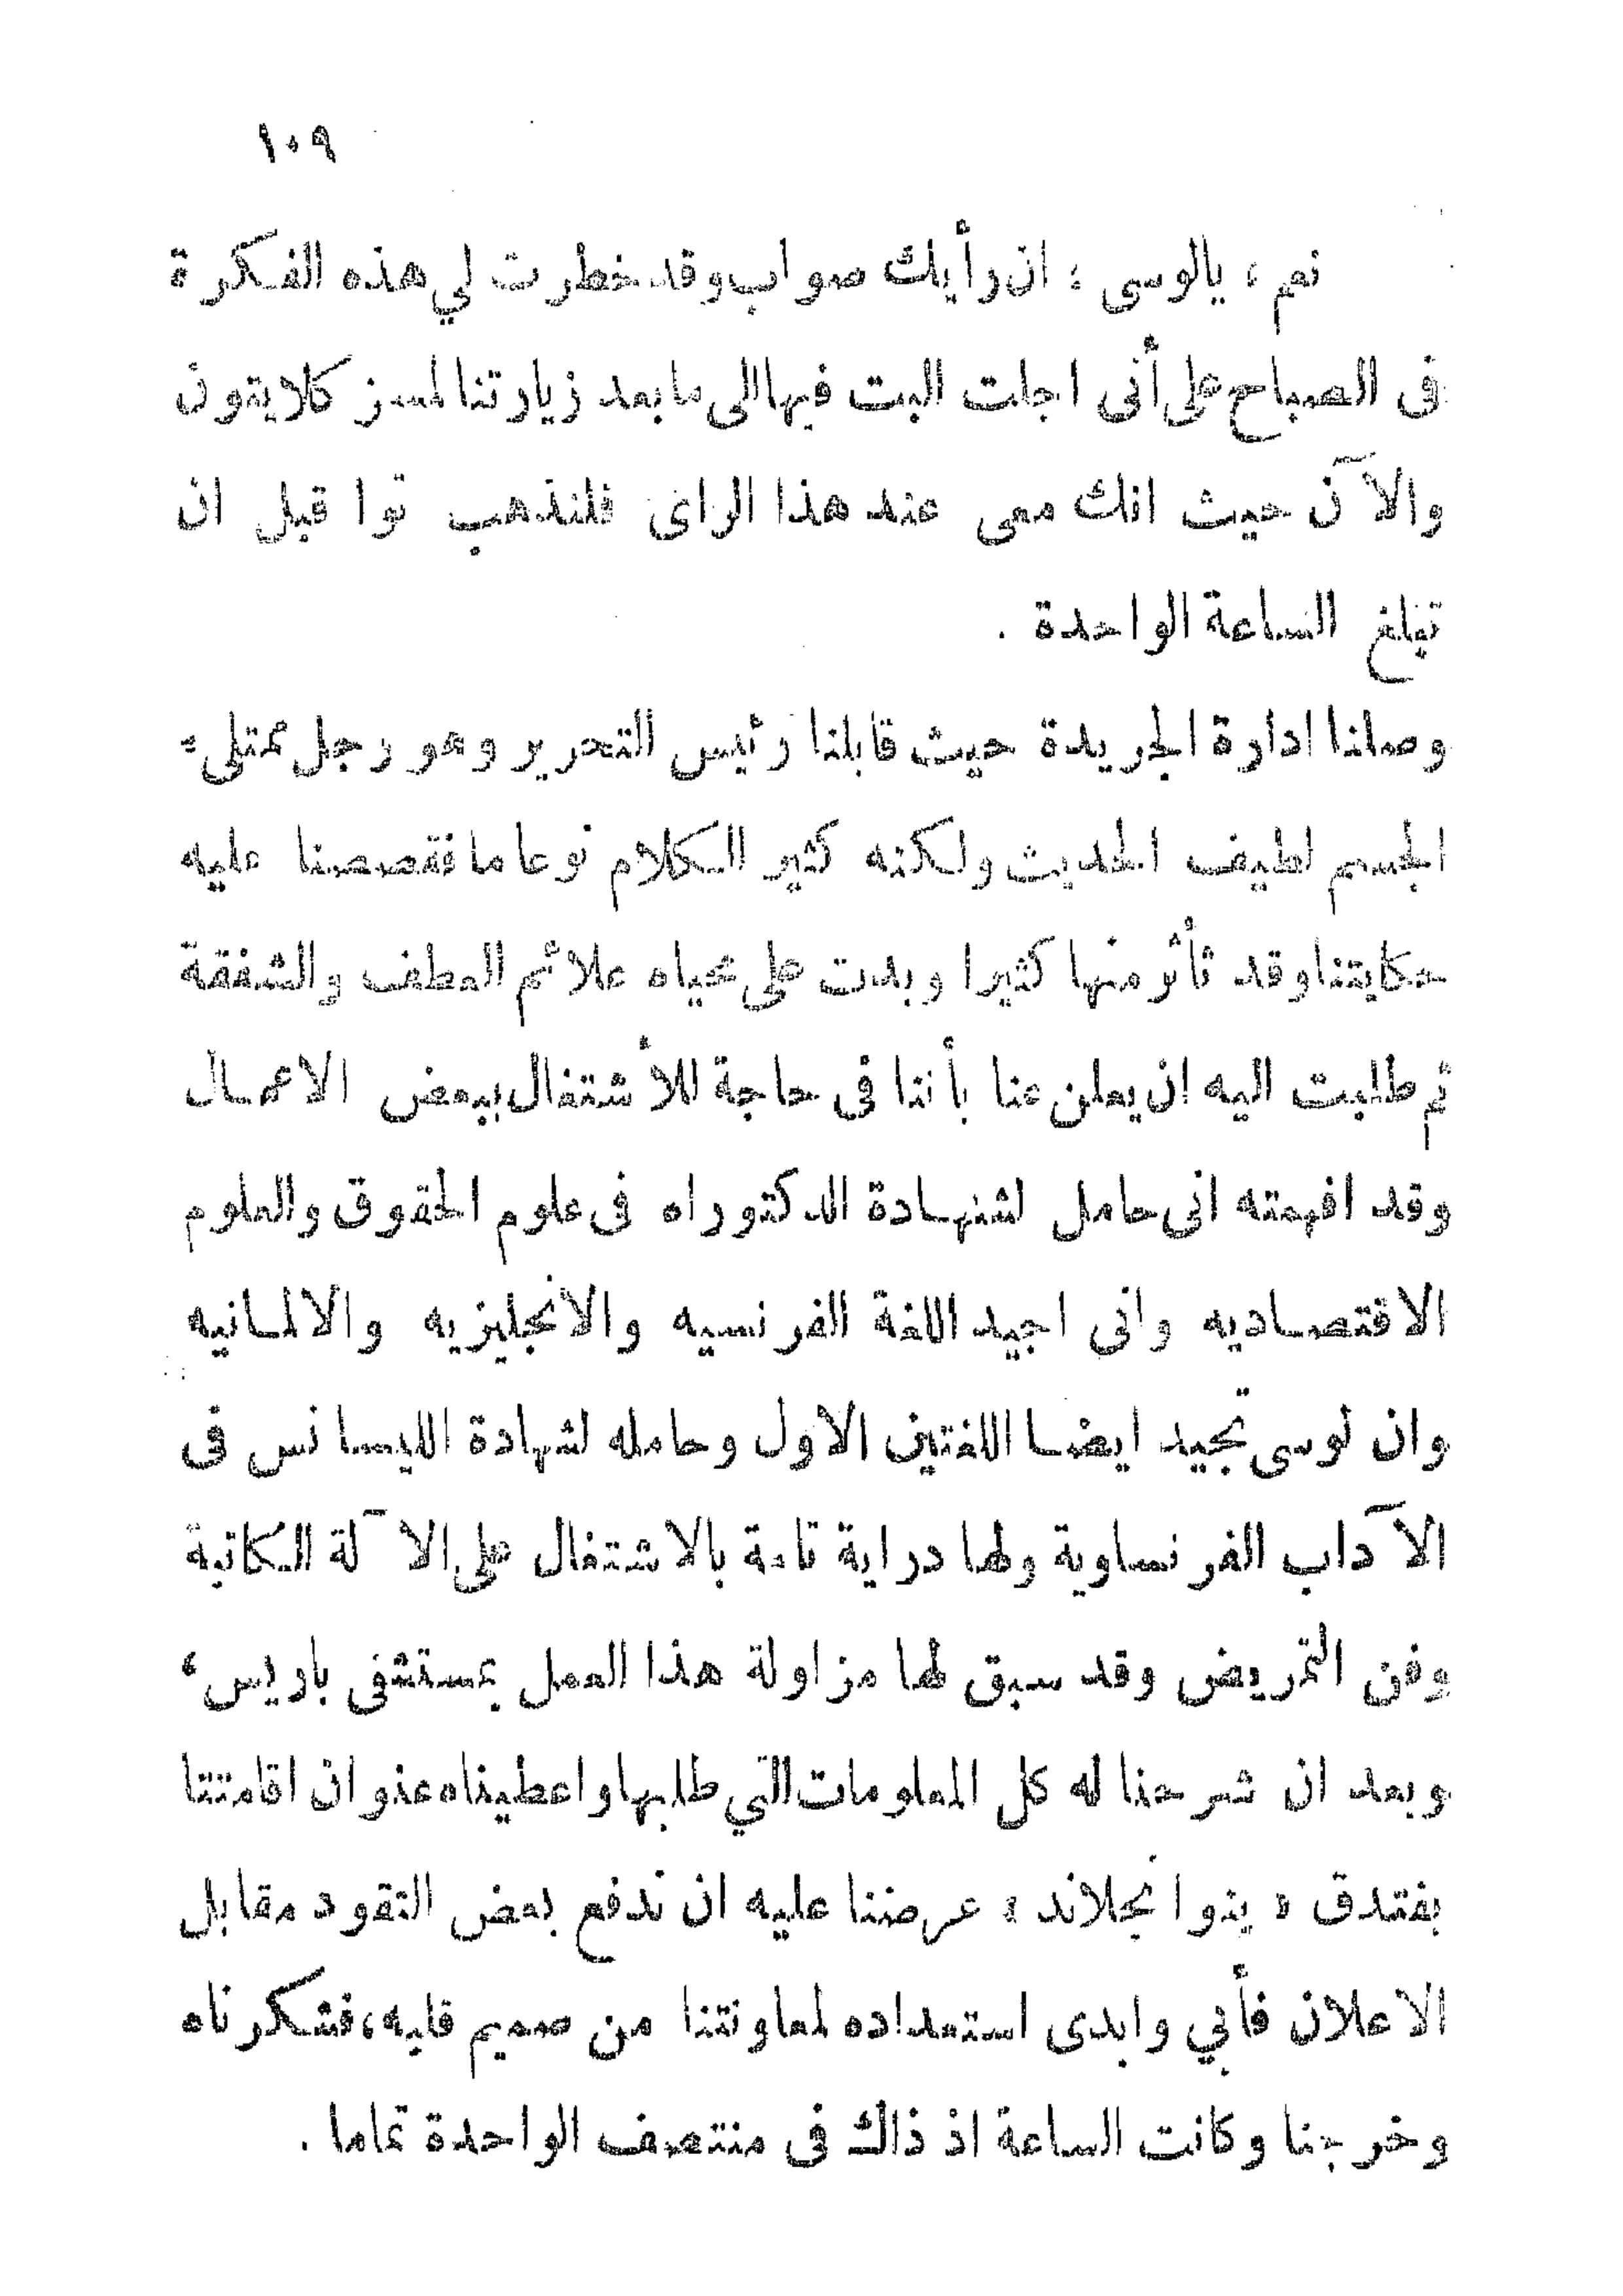 ١٠٩
نعم ، يالوسى ، ان رأيك صواب وقد خطرت لي هذه الفكرة
فى الصباح على أنى اجلت البت فيها الى مابعد زيارتنا لمسز كلايتون
والآن حيث انك معى عند هذا الراى فلنذهب توا قبل ان
تبلغ الساعة الواحدة .
وصلنا ادارة الجريدة حيث قابلنا رئيس التحرير وهو رجل ممتلىء
الجسم لطيف الحديث ولكنه كثير الكلام نوعا ما فقصصنا عليه
حكايتنا وقد تأثر منها كثيرا وبدت على محياه علائم العطف والشفقة
ثم طلبت اليه ان يعلن عنا بأننا فى حاجة للأشتغال ببعض الاعمال
وقد افهمته انى حامل لشهادة الدكتوراه فى علوم الحقوق والعلوم
الاقتصاديه وانى اجيد اللغة الفرنسيه والانجليزيه والالمانيه
وان لوسى تجيد ايضا اللغتين الاول وحامله لشهادة الليسانس فى
الآداب الفرنساوية ولها دراية تامة بالاشتغال على الآلة الكاتبة
وفن التمريض وقد سبق لها مزاولة هذا العمل بمستشفى باريس ،
وبعد ان شرحنا له كل المعلومات التي طلبها واعطيناه عنوان اقامتنا
بفندق « ينوانجلاند » عرضنا عليه ان ندفع بعض النقود مقابل
الاعلان فأبي وابدى استعداده لمعاونتنا من صميم قلبه ، فشكرناه
وخرجنا وكانت الساعة اذ ذاك فى منتصف الواحدة تماما .